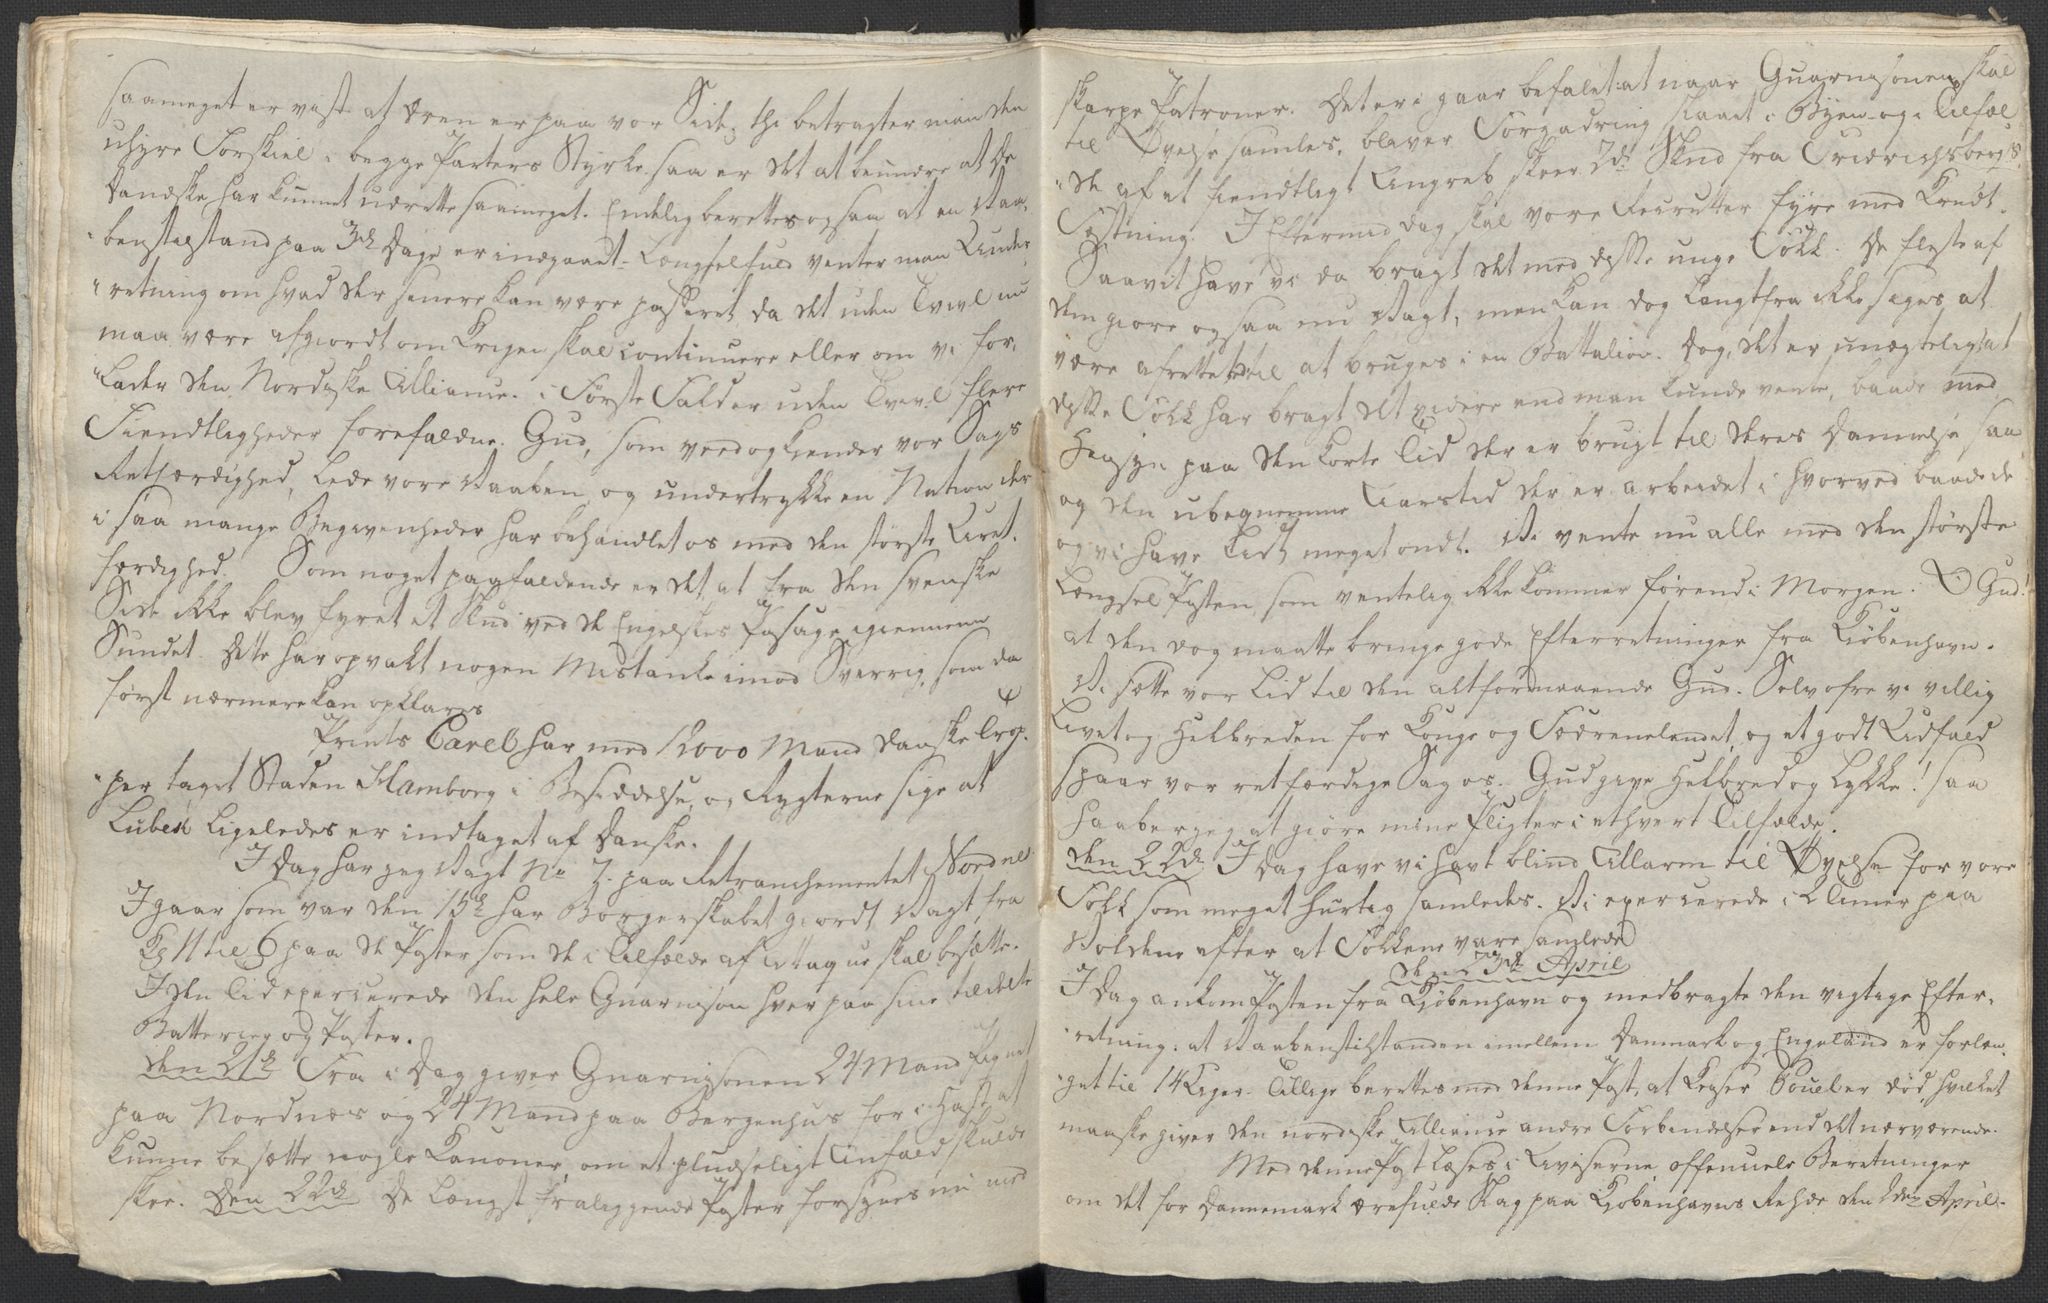 saameget er vist at Æren er paa vor Side; thi betragter man den
uhyre Forskiel i begge Parters Styrke, saa er det at beundre at de
Danske har kunnet udrette saameget. Endelig berettes ogsaa at en Vaa,,
,,benstilstand paa 3de Dage er indgaaet. Længselfuld venter man Under,,
,,retning om hvad der senere kan være passeret da det uden Tvivl nu
maa være afgiordt om Krigen skal continuere eller om vi for,,
,,lader den Nordiske Alliance. i Første Fald er uden Tvivl flere
Fiendtligheder forefaldne. Gud, som veed og kiender vor Sags
Retfærdighed, lede vore Vaaben, og undertrykke en Nation der
i saa mange Begivenheder har behandlet os med den største Uret,,
færdighed. Som noget paafaldende er det at fra den svenske
Side ikke blev fyret et Skud ved de Engelskes Passage igiennem
Sundet. Dette har opvakt nogen Mistanke imod Sverrig, som da
først nærmere kan opklares
Prints Carel har med 12000 Mand danske Trop,,
,,per taget Staden Hamborg i Besiddelse, og Rygterne sige at
Lubek ligeledes er indtaget af Danske.
I Dag har jeg Vagt No 7. paa Retranchementet Nordnes
Igaar som var den 15de har Borgerskabet giordt Vagt fra
Kl 11 til 6 paa de Poster som de i Tilfælde af Attaque skal besætte.
I den Tid exercerede den hele Guarnison hver paa sine tildelte
Batterier og Poster.
den 21de Fra i Dag giver Guarnisonen 24 Mand Piquet
paa Nordnæs og 24 Mand paa Bergenhus for i Hast at
kunne besætte nogle Kanoner, om et pludseligt Anfald skulde
skee. Den 22de De længst fraliggende Poster forsynes nu med
skarpe Patroner. Det er i gaar befalet at naar Guarnisonen skal
til Øvelse samles, bliver Forgadring slaaet i Byen og i Tilfæl,,
,,de af et fiendtligt Angreb skeer 2de Skud fra Fridrichsbergs
Fæstning. I Eftermiddag skal vore Recrutter fyre med Krudt.
Saavit have vi da bragt det med disse unge Folk. De fleste af
dem giøre ogsaa nu Vagt, men kan dog langtfra ikke siges at
være afrettet til at bruges i en Battalion. Dog, det er unægteligt at
disse Folk har bragt det videre end man kunde vente, baade med
Hensyn paa den korte Tid der er brugt til deres Dannelse saa
og den ubeqvemme Aarstid der er arbeidet i hvorved baade de
og vi have lidt meget ondt. Vi vente nu alle med den største
Længsel Posten, som ventelig ikke kommer førend i Morgen. O Gud!
at den dog maatte bringe gode Efterretninger fra Kiøbenhavn.
Vi sætte vor Lid til den altformaaende Gud. Selv ofre vi villig
Livet og Helbreden for Konge og Fædrenelandet, og et godt Udfald
spaar vor retfærdige Sag os. Gud give Helbred og Lykke! saa
haaber jeg at giøre mine Pligter i ethvert Tilfælde.
den 22de I Dag have vi havt blind Allarm til Øvelse for vore
Folk som meget hurtig samledes. Vi exercerede i 2 Timer paa
Voldene efter at Folkene vare samlede
den 23de April
I Dag ankom Posten fra Kiøbenhavn og medbragte den vigtige Efter,,
,,retning: at Vaabenstilstanden imellem Danmark og Engeland er forlæn,,
,,get til 14 Uger. Tillige berettes med denne Post, at Keiser Pouel er død, hvilket
maaske giver den nordiske Alliance andre Forbindelser end det nærværende.
Med denne Post læses i Aviserne officiele Beretninger
om det for Dannemark ærefulde Slag paa Kiøbenhavns Rehde den 2den April.